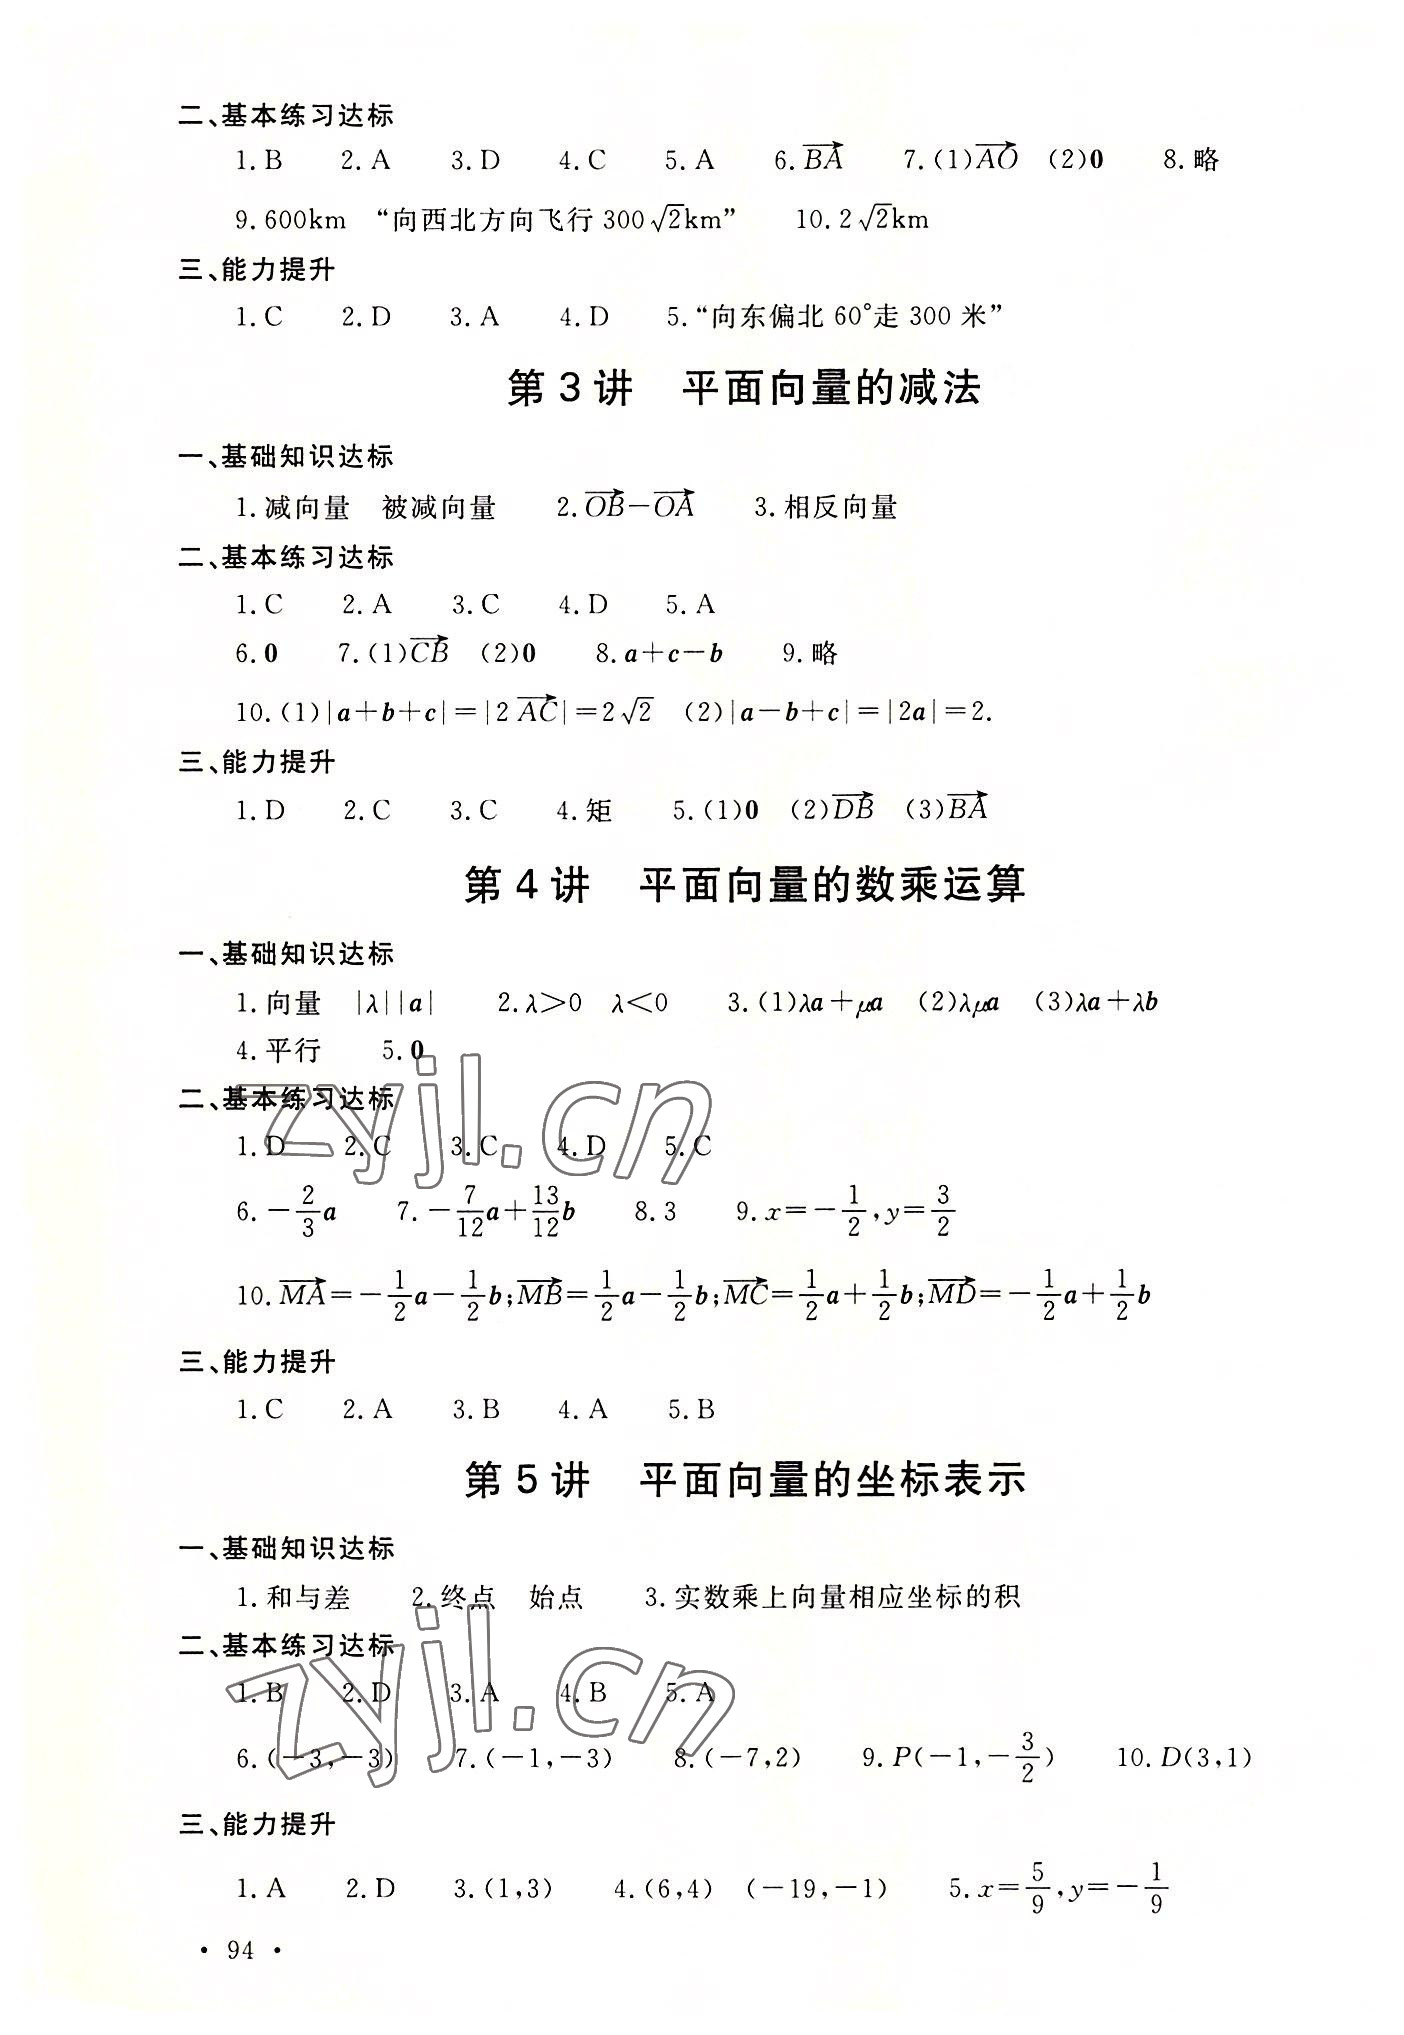 二、基本练习达标
1.B 2.A 3.D 4.C 5.A 6.$\overrightarrow{BA}$ 7.(1)$\overrightarrow{AO}$ (2)0 8.略
9.600km “向西北方向飞行 300√2km” 10.2√2km
三、能力提升
1.C 2.D 3.A 4.D 5.“向东偏北 60°走 300 米”
第 3 讲 平面向量的减法
一、基础知识达标
1.减向量 被减向量 2.$\overrightarrow{OB}-\overrightarrow{OA}$ 3.相反向量
二、基本练习达标
1.C 2.A 3.C 4.D 5.A
6.0 7.(1)$\overrightarrow{CB}$ (2)0 8.a+c-b 9.略
10.(1)|a+b+c|=|2$\overrightarrow{AC}$|=2√2 (2)|a-b+c|=|2a|=2.
三、能力提升
1.D 2.C 3.C 4.矩 5.(1)0 (2)$\overrightarrow{DB}$ (3)$\overrightarrow{BA}$
第 4 讲 平面向量的数乘运算
一、基础知识达标
1.向量 |λ||a| 2.λ>0 λ<0 3.(1)λa+μa (2)λμa (3)λa+λb
4.平行 5.0
二、基本练习达标
1.D 2.C 3.C 4.D 5.C
6.$-\frac{2}{3}a$ 7.$-\frac{7}{12}a+\frac{13}{12}b$ 8.3 9.$x=-\frac{1}{2},y=\frac{3}{2}$
10.$\overrightarrow{MA}=-\frac{1}{2}a-\frac{1}{2}b;\overrightarrow{MB}=\frac{1}{2}a-\frac{1}{2}b;\overrightarrow{MC}=\frac{1}{2}a+\frac{1}{2}b;\overrightarrow{MD}=-\frac{1}{2}a+\frac{1}{2}b$
三、能力提升
1.C 2.A 3.B 4.A 5.B
第 5 讲 平面向量的坐标表示
一、基础知识达标
1.和与差 2.终点 始点 3.实数乘上向量相应坐标的积
二、基本练习达标
1.B 2.D 3.A 4.B 5.A
6.(-3,-3) 7.(-1,-3) 8.(-7,2) 9.$P(-1,-\frac{3}{2})$ 10.D(3,1)
三、能力提升
1.A 2.D 3.(1,3) 4.(6,4) (-19,-1) 5.$x=\frac{5}{9},y=-\frac{1}{9}$
• 94 •
zyjl.cn
zyjl.cn